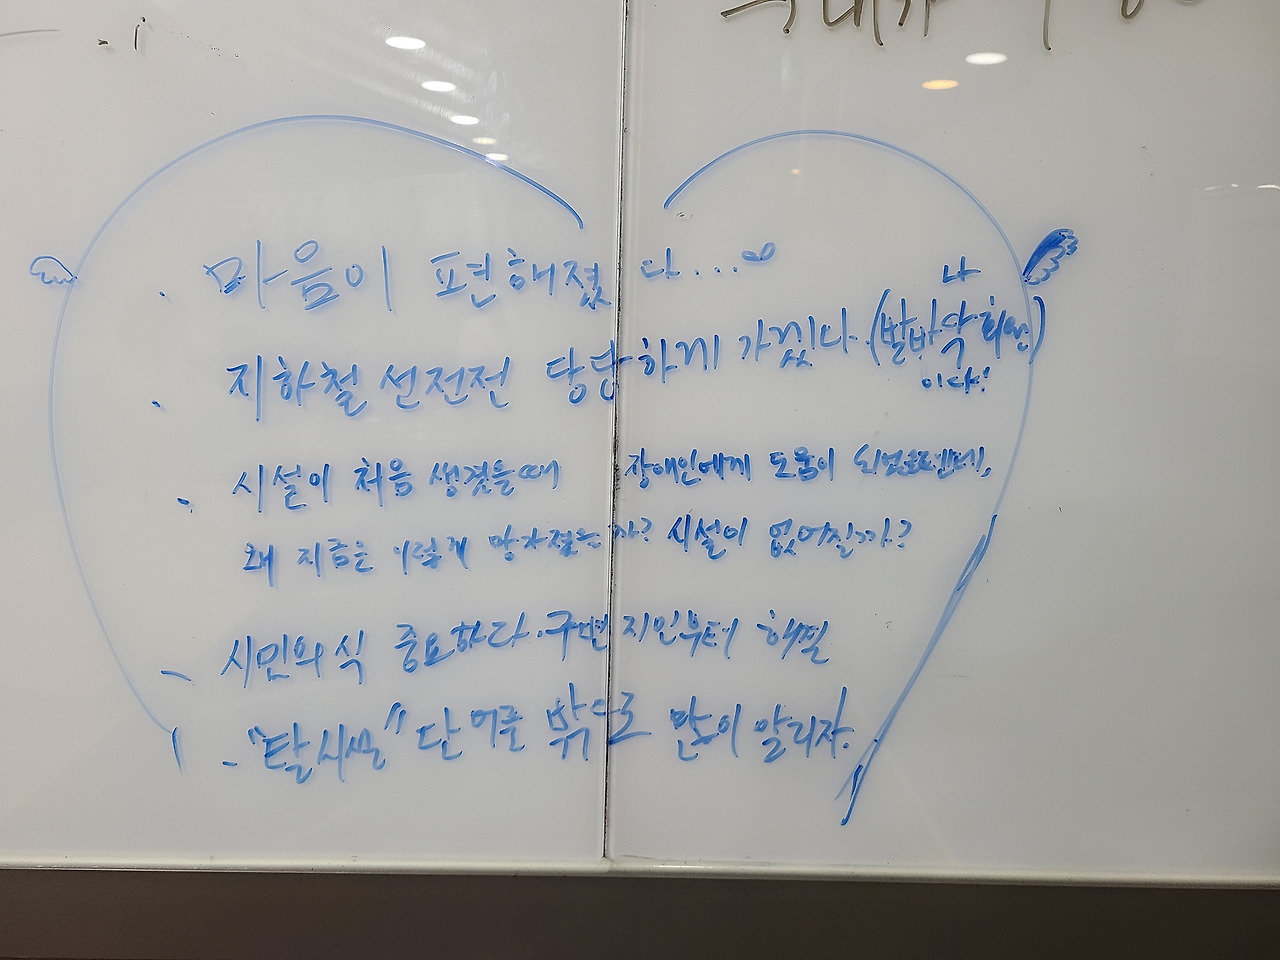 마음이 편해졌다...
지하철 선전전 당당하게 가겠다. (나 발바닥 회원이다!)
시설이 처음 생겼을때 장애인에게 도움이 되었을텐데,
왜 지금은 이렇게 망가졌는가? 시설이 없어질까?
시민의식 중요하다. 주변 지인부터 해필
"탈시설" 단어를 밖으로 많이 알리자.